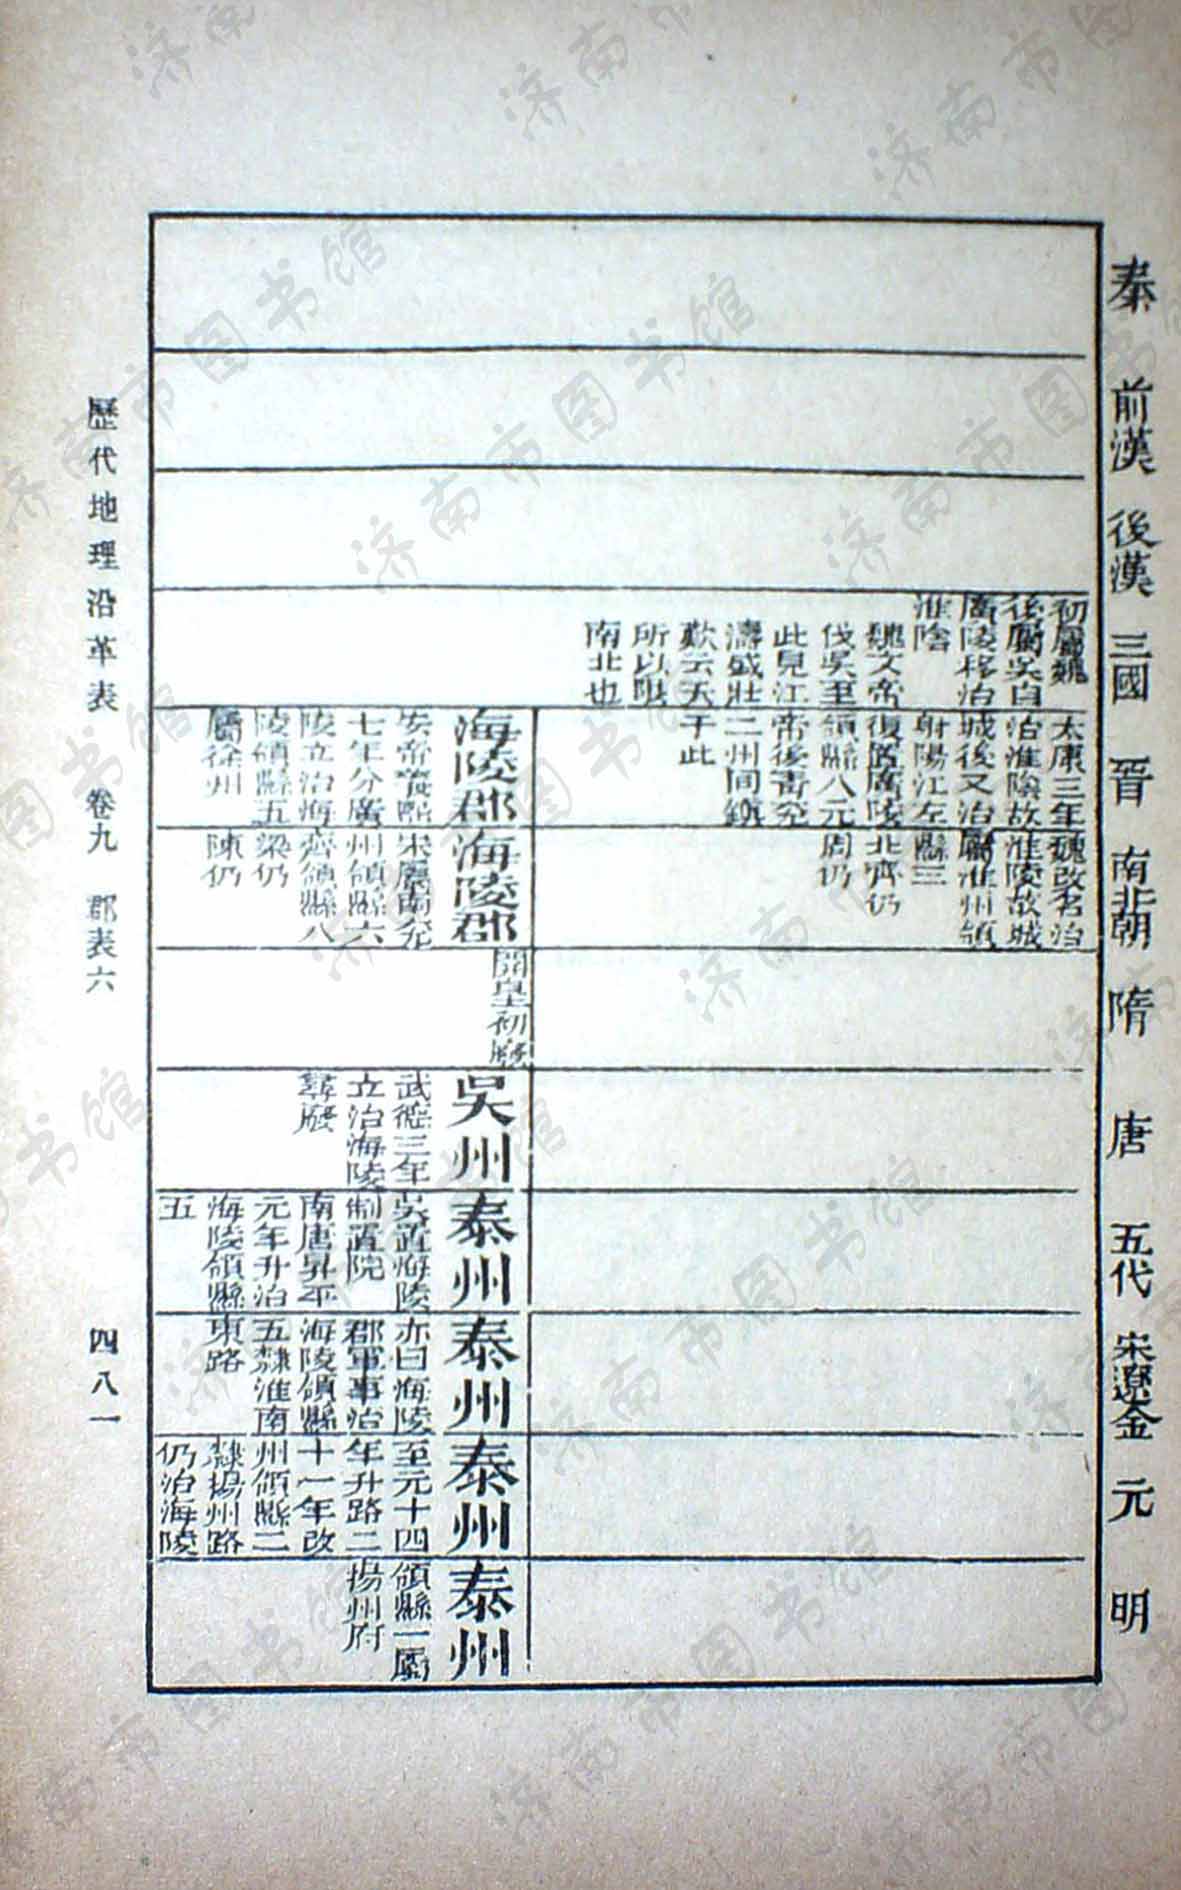 秦 前漢 後漢 三國 晉 南北朝 隋 唐 五代 宋遼金 元 明
初屬魏
後屬吳自
廣陵移治
淮陰
魏文帝
伐吳至
此見江
濤盛壯
歎云天
所以限
南北也
太康三年
治淮陰故
城後又治
射陽江左
復置廣陵
領縣八元
帝後靑兗
二州間鎮
于此
魏改名治
淮陵故城
屬淮州領
縣三
北齊仍
周仍
海陵郡
安帝義熙
七年分廣
陵立治海
陵領縣五
屬徐州
海陵郡
宋屬南兗
州領縣六
齊領縣八
梁仍
陳仍
開皇初廢
吳州
武德三年
立治海陵
尋廢
泰州
吳置海陵
制置院
南唐昇平
元年升治
海陵領縣
五
泰州
亦曰海陵
郡軍事治
海陵領縣
五隸淮南
東路
泰州
至元十四
年升路二
十一年改
州領縣二
隸揚州路
仍治海陵
泰州
領縣一屬
揚州府
歷代地理沿革表 卷九 郡表六 四八一
济南市图书馆